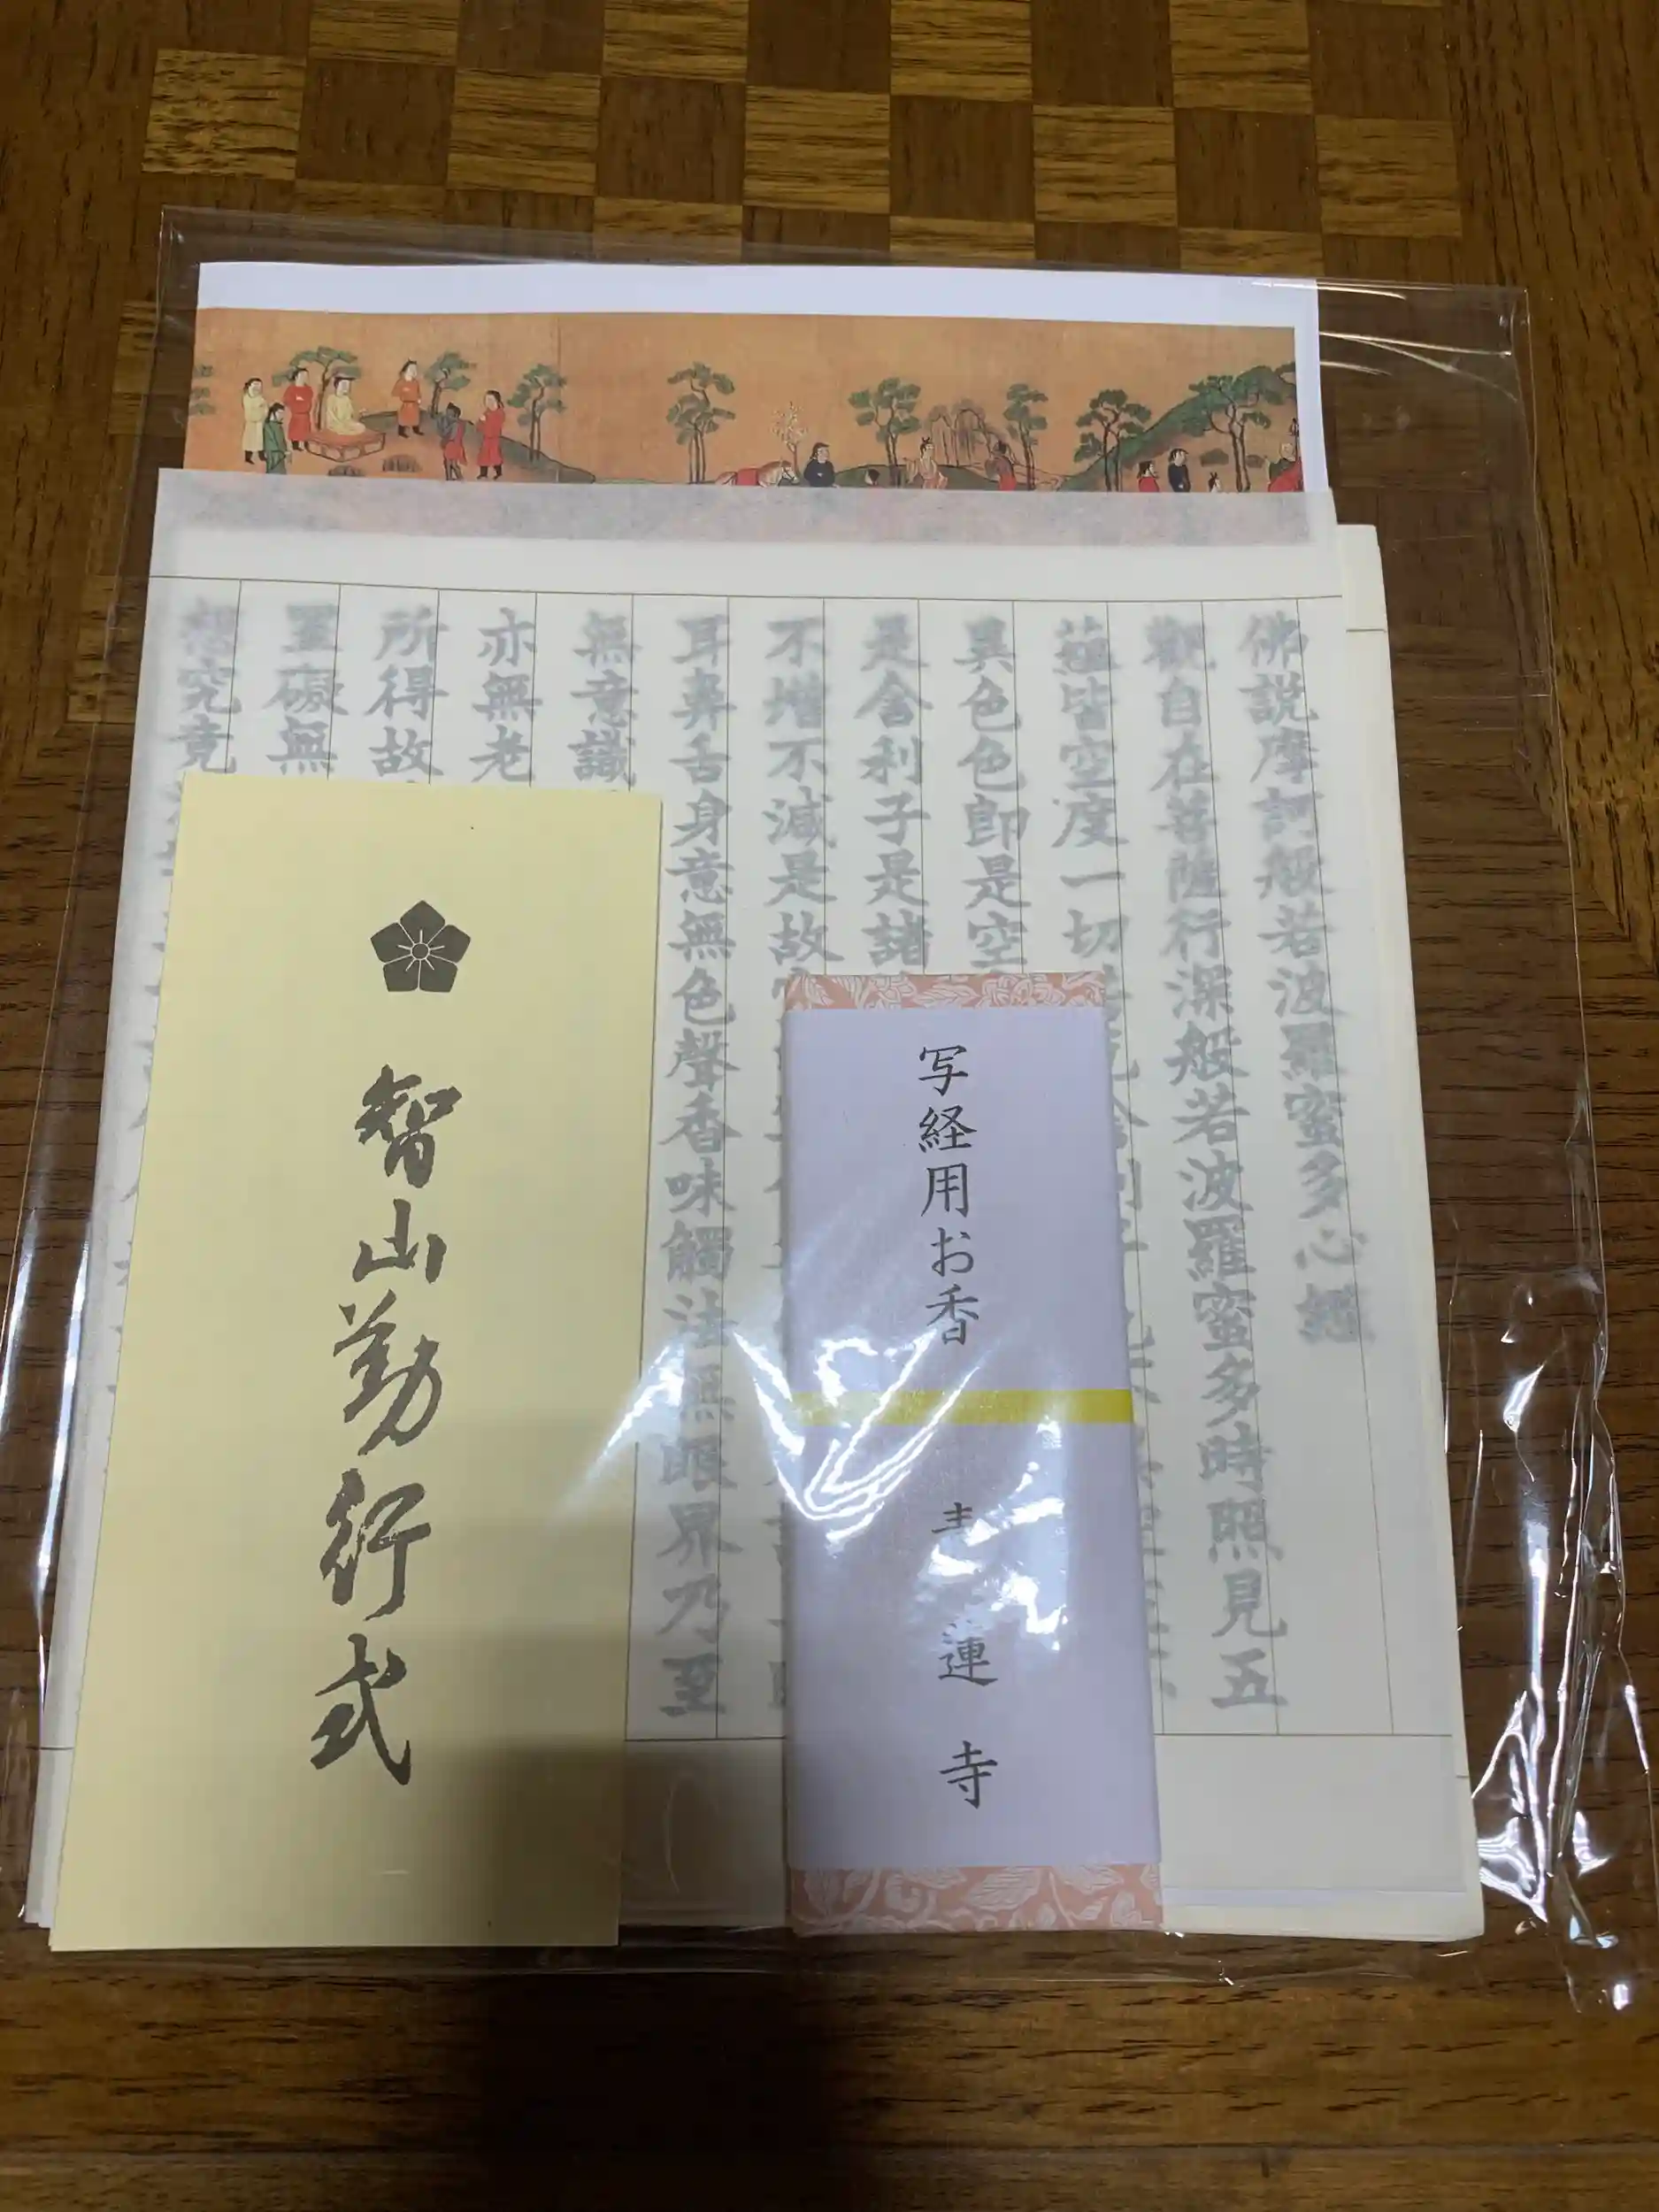 佛説摩訶般若波羅蜜多心經
觀自在菩薩行深般若波羅蜜多時照見五
蘊皆空度一切
異色色即是空
是舍利子是諸
不増不減是故
耳鼻舌身意無色聲香味觸法無眼界乃至
無意識
亦無老
所得故
罣礙無
想究竟
写経用お香
蓮寺
智山勤行式